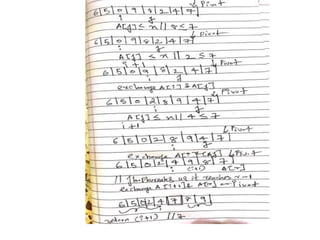 6|5|0|9|8|2|4|7| Pivot
A[j] ≤ x // 8 ≤ 7
Pivot
6|5|0|9|8|2|4|7|
i j
A[j] ≤ x || 2 ≤ 7
i+1 Pivot
6|5|0|9|8|2|4|7|
i j
exchange A[i] & A[j]
Pivot
6|5|0|2|8|9|4|7|
i j
A[j] ≤ x|| 4 ≤ 7
i+1
Pivot
6|5|0|2|8|9|4|7|
i j
exchange A[i] & A[j] Pivot
6|5|0|2|4|9|8|7|
i (i+1) A[r]
// it reaches r-1
exchange A[i+1] & A[r] Pivot
6|5|0|2|4|7|8|9|
return (i+1) // 7